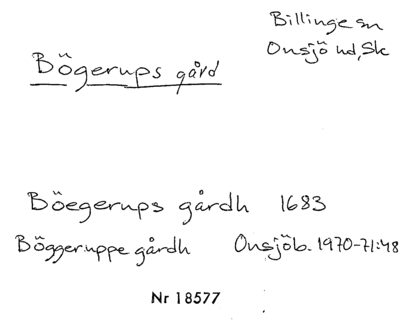 Billinge sn
Onsjö hd, Sk
Bögerups gård
Böegerups gårdh 1683
Böggeruppe gårdh Onsjöb. 1970-71:48
Nr 18577